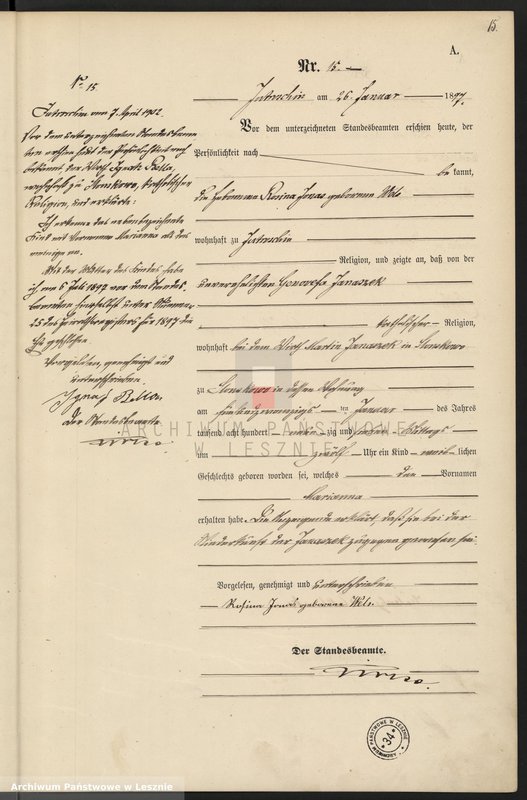 15.
A.
Nr. 15.
Jutroschin am 26. Januar 1897.
Vor dem unterzeichneten Standesbeamten erschien heute, der
Persönlichkeit nach
bekannt,
die Hebamme Rosina Jonas geborene Wels
wohnhaft zu Jutroschin
Religion, und zeigte an, daß von der
unverehelichten Genovefa Janaszek
katholischer Religion,
wohnhaft bei dem Wirth Martin Janaszek in Slonskowo
zu Slonskowo in dessen Wohnung
am fünfundzwanzigsten Januar des Jahres
tausend acht hundert neunzig und sieben Mittags
um zwölf Uhr ein Kind weiblichen
Geschlechts geboren worden sei, welches den Vornamen
Marianna
erhalten habe. Die Anzeigende erklärt, daß sie bei der
Niederkunft der Janaszek zugegen gewesen sei.
Vorgelesen, genehmigt und unterschrieben
Rosina Jonas geborene Wels.
Der Standesbeamte.
No 15
Jutroschin am 7. April 1902.
Vor dem unterzeichneten Standesbeam-
ten erschien heute der Persönlichkeit nach
bekannt, der Wirth Ignatz Bella,
wohnhaft zu Slonskowo, katholischer
Religion, und erklärte:
Ich erkenne das nebenbezeichnete
Kind mit Vornamen Marianna als das
meinige an.
Mit der Mutter des Kindes habe
ich am 6. Juli 1897 vor dem Standes-
beamten hierselbst unter Nummer
25 des Heirathsregisters für 1897 die
Ehe geschlossen.
Vorgelesen, genehmigt und
unterschrieben.
Ignaz Bella
Der Standesbeamte
ARCHIWUM PAŃSTWOWE
W LESZNIE
ARCHIWUM PAŃSTWOWE W LESZNIE
34
Archiwum Państwowe w Lesznie